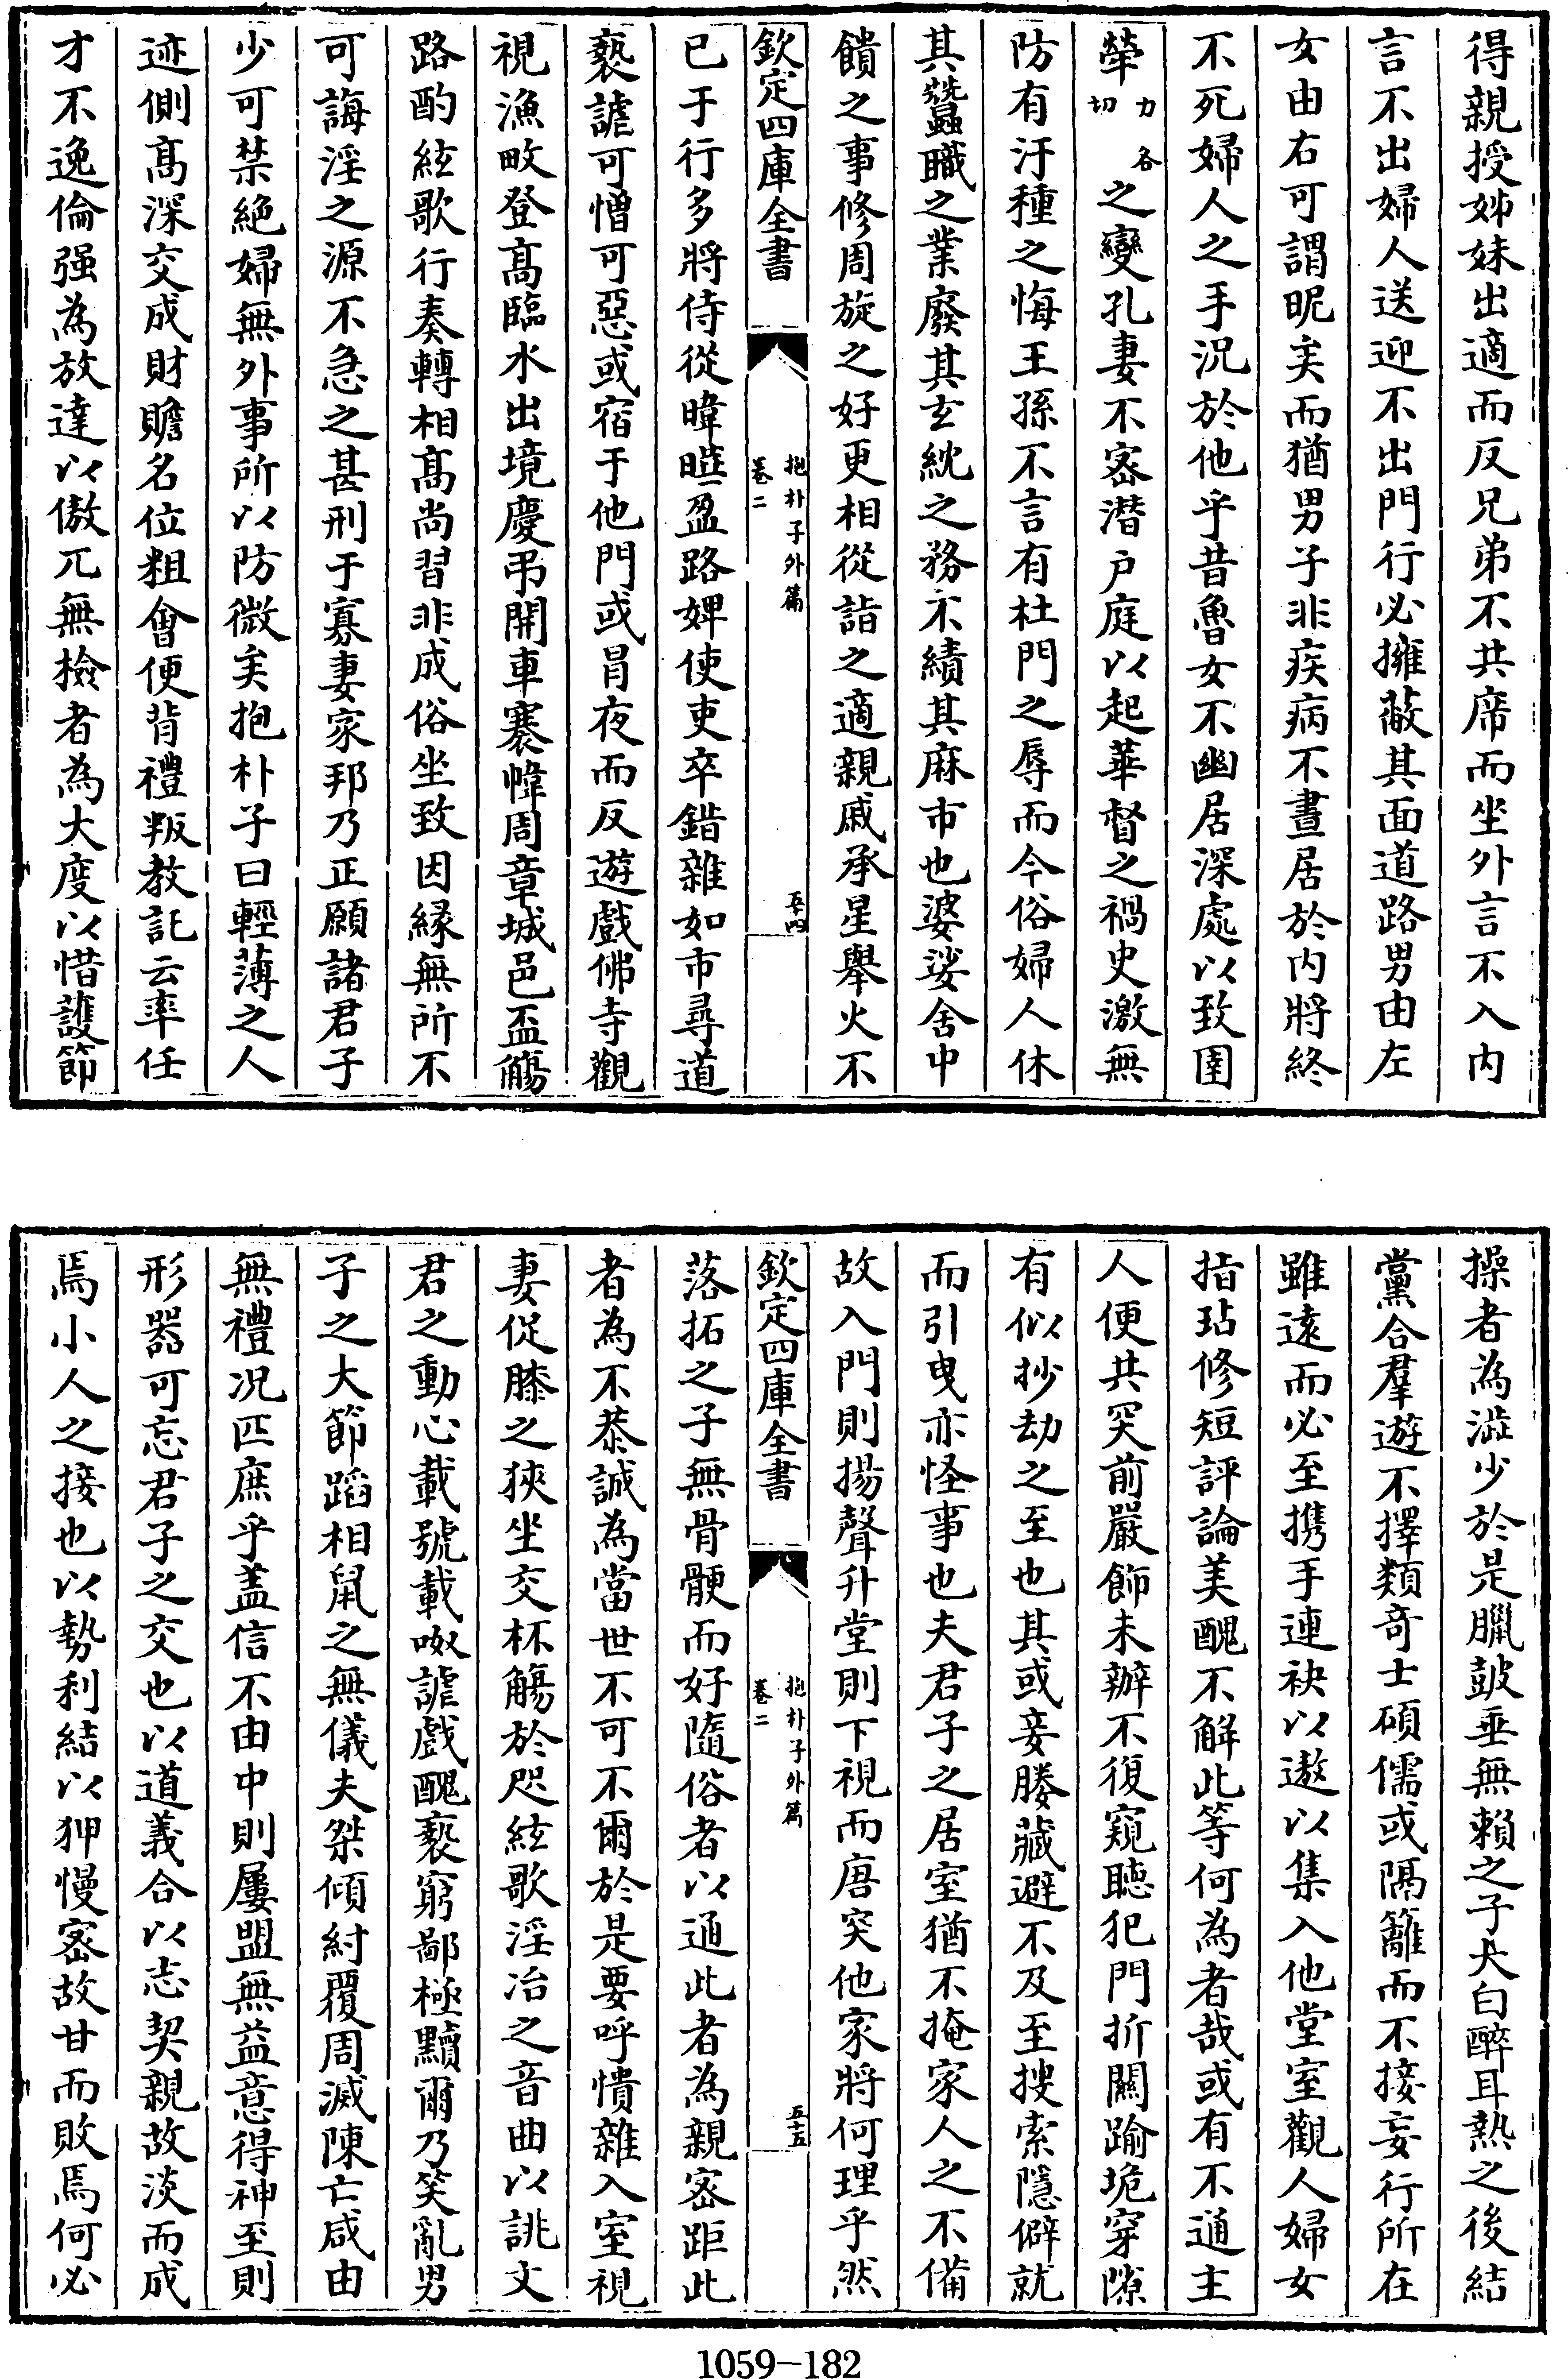 得親授姊妹出適而反兄弟不共席而坐外言不入内
言不出婦人送迎不出門行必擁蔽其面道路男由左
女由右可謂昵矣而猶男子非疾病不晝居於内將終
不死婦人之手況於他乎昔魯女不幽居深處以致圉
犖力各切之變孔妻不宻潛户庭以起華督之禍史激無
防有汙種之悔王孫不言有杜門之辱而今俗婦人休
其蠶職之業廢其玄紞之務不績其麻市也婆娑舍中
饋之事修周旋之好更相從詣之適親戚承星舉火不
欽定四庫全書
抱朴子外篇
卷二
五十四
已于行多將侍從暐曄盈路婢使吏卒錯雜如市尋道
褻謔可憎可惡或宿于他門或冒夜而反遊戲佛寺觀
視漁畋登髙臨水出境慶弔開車褰幃周章城邑盃觴
路酌絃歌行奏轉相髙尚習非成俗坐致因縁無所不
可誨淫之源不急之甚刑于寡妻家邦乃正願諸君子
少可禁絶婦無外事所以防微矣抱朴子曰輕薄之人
迹側髙深交成財贍名位粗㑹便背禮叛教託云率任
才不逸倫强為放達以傲兀無檢者為大度以惜護節
操者為澁少於是臘鼓垂無賴之子大白醉耳熱之後結
黨合羣遊不擇類奇士碩儒或隔籬而不接妄行所在
雖遠而必至携手連袂以遨以集入他堂室觀人婦女
指玷修短評論美醜不解此等何為者哉或有不通主
人便共突前嚴飾未辦不復窺聽犯門折關踰垝穿隙
有似抄劫之至也其或妾媵藏避不及至搜索隱僻就
而引曳亦怪事也夫君子之居室猶不掩家人之不備
故入門則揚聲升堂則下視而唐突他家將何理乎然
欽定四庫全書
抱朴子外篇
卷二
五十五
落拓之子無骨骾而好隨俗者以通此者為親宻距此
者為不恭誠為當世不可不爾於是要呼憒雜入室視
妻促膝之狹坐交杯觴於咫絃歌淫冶之音曲以誂文
君之動心載號載呶謔戲醜褻窮鄙極黷爾乃笑亂男
子之大節蹈相鼠之無儀夫桀傾紂覆周滅陳亡咸由
無禮况匹庶乎盖信不由中則屢盟無益意得神至則
形器可忘君子之交也以道義合以志契親故淡而成
焉小人之接也以勢利結以狎慢宻故甘而敗焉何必
1059-182